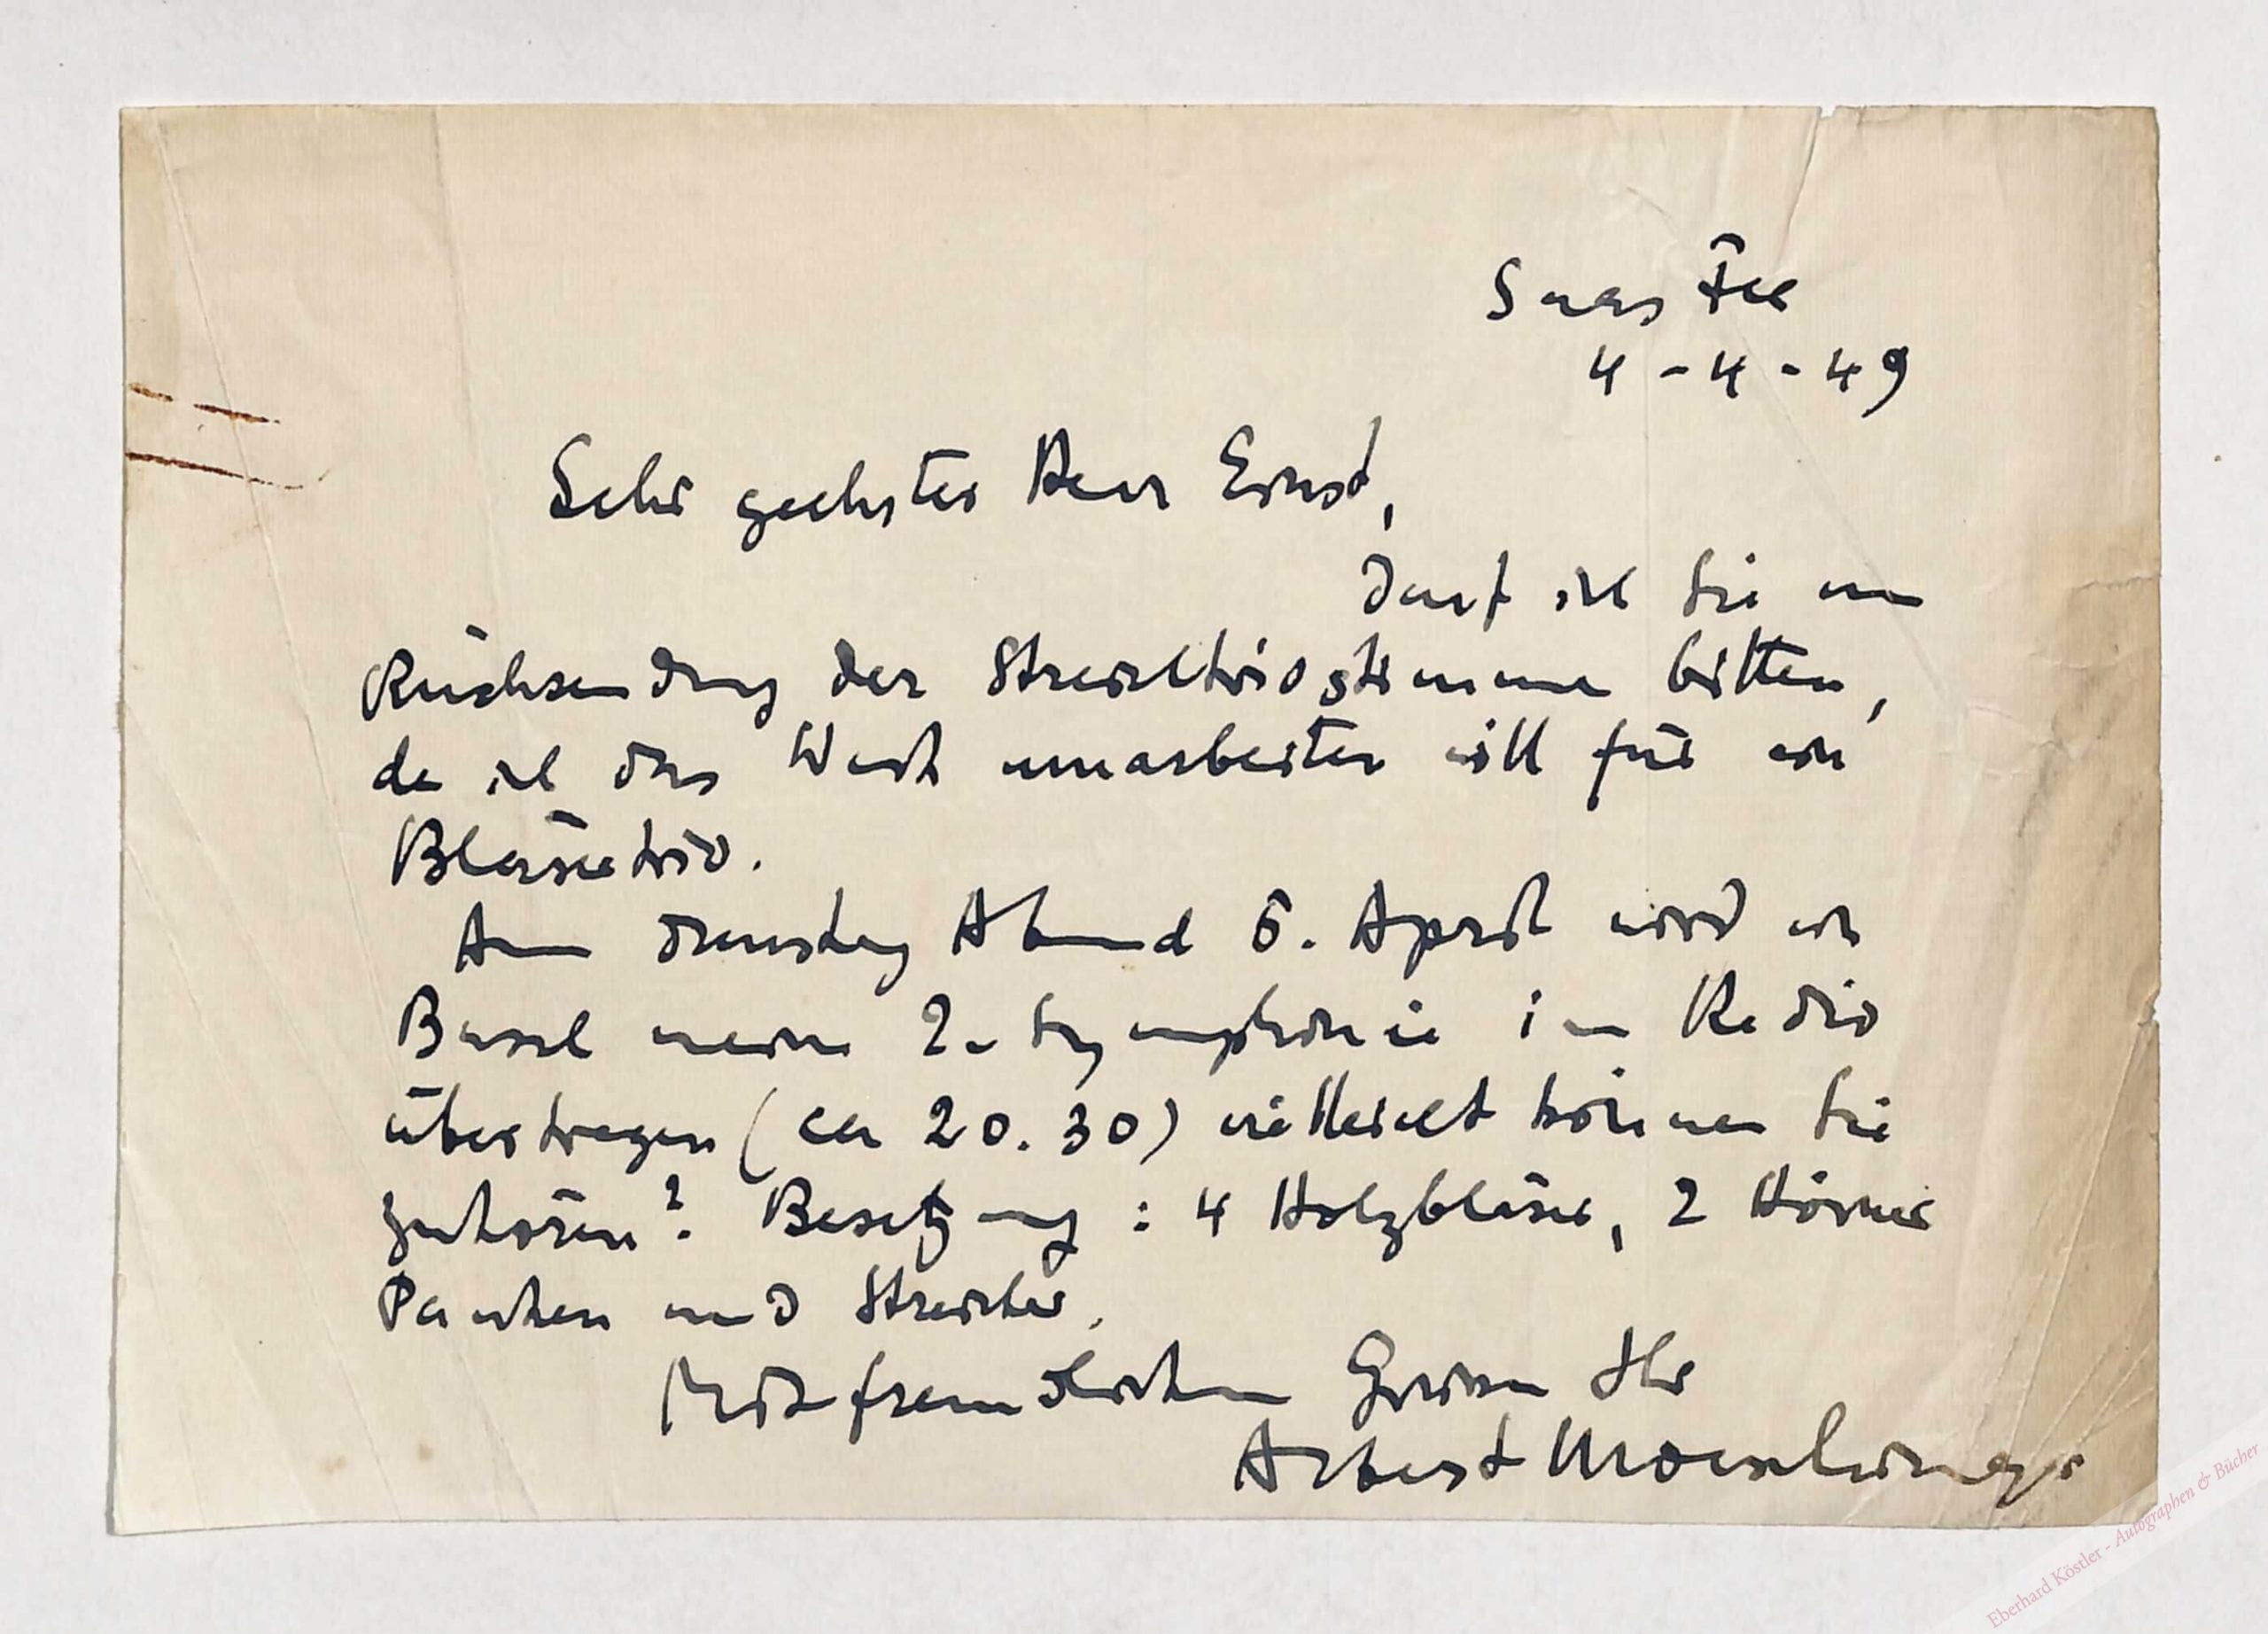 Saas Fee
4-4-49
Sehr geehrter Herr Ernst,
Darf ich Sie um
Rücksendung der Streichtriostimmen bitten,
da ich das Werk umarbeiten will für ein
Bläsertrio.
Am Dienstag Abend 5. April wird in
Basel meine 2. Symphonie im Radio
übertragen (ca 20.30) vielleicht können Sie
zuhören? Besetzung: 4 Holzbläser, 2 Hörner
Pauken und Streicher.
Mit freundlichen Grüssen Ihr
Albert Moeschinger
Eberhard Köstler - Autographen & Bücher